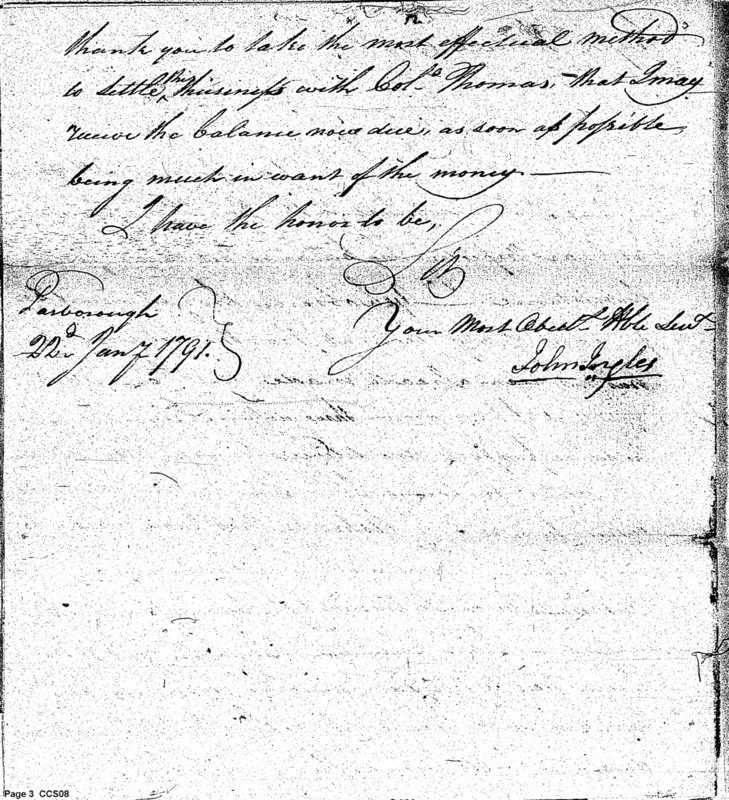 thank you to take the most effectual method
to settle the business with Col.º Thomas, - that I may
receive the balance now due, as soon as possible
being much in want of the money —
I have the honor to be,
Sir
Your Most Obed.t Hble Serv.t
John Ingles
Tarborough
22.d Jany 1791.
Page 3 CCS08